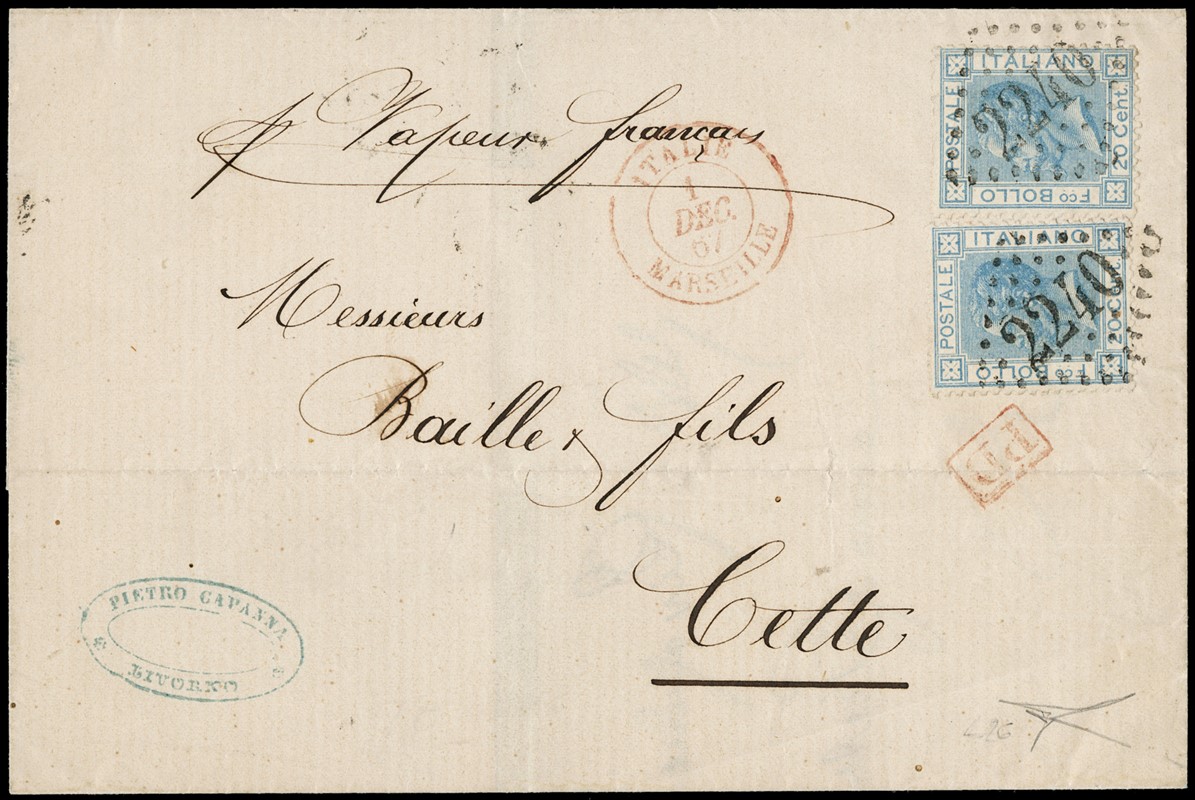 p Vapeur français
ITALIE
1
DEC.
67
MARSEILLE
POSTALE ITALIANO 20 Cent.
Fco BOLLO
2240
POSTALE ITALIANO 20 Cent.
Fco BOLLO
2240
Messieurs
Baille & fils
PD
Cette
PIETRO CAPANNA
LIVORNO